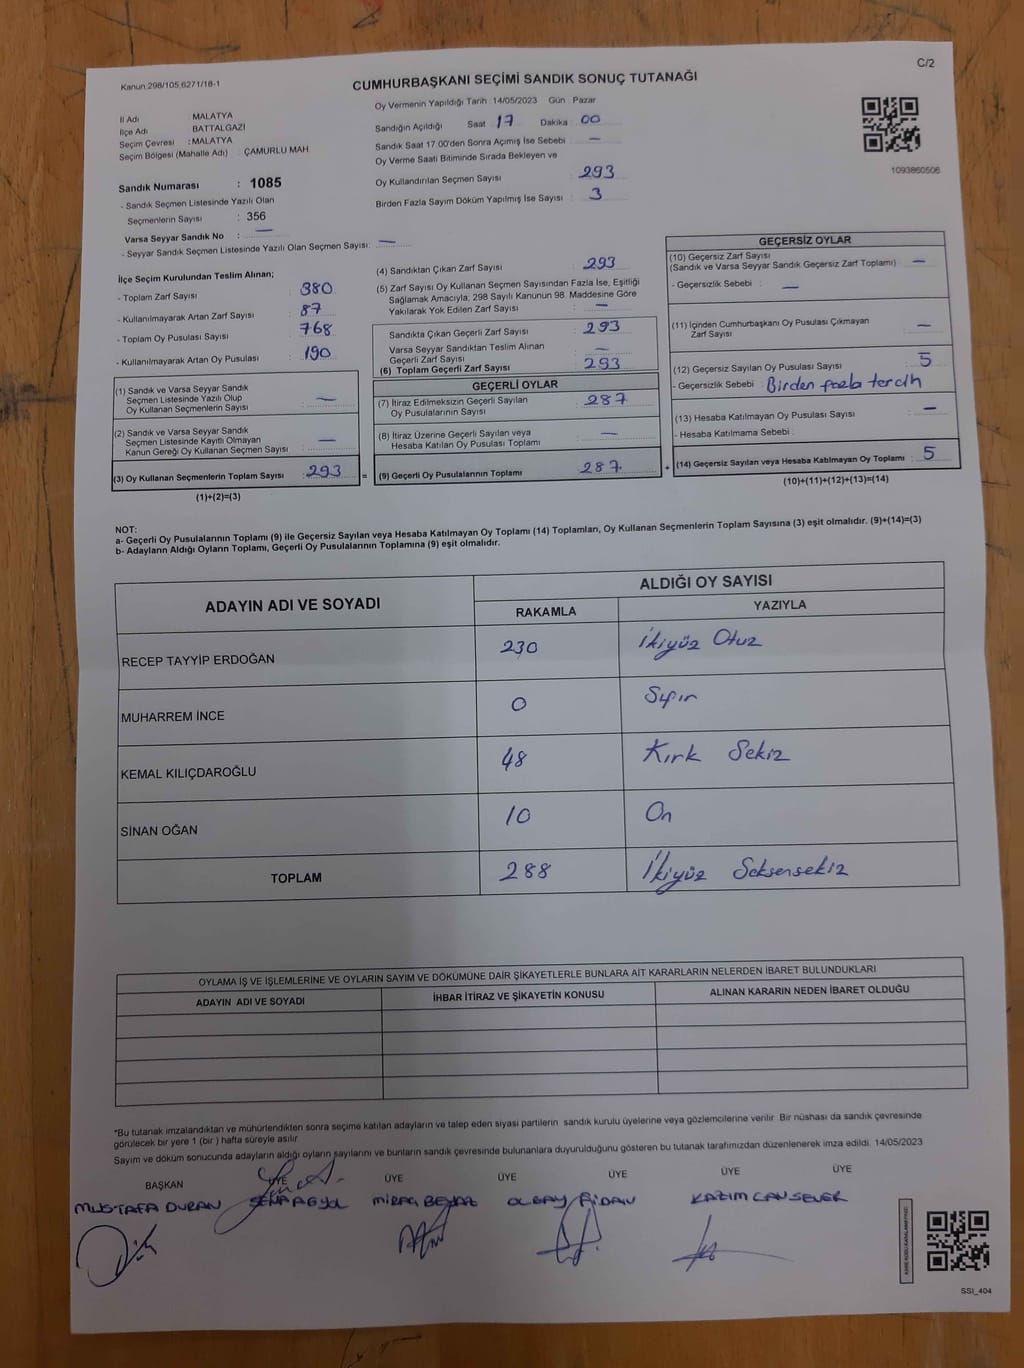 C/2
Kanun:298/105,6271/18-1
CUMHURBAŞKANI SEÇİMİ SANDIK SONUÇ TUTANAĞI
Oy Vermenin Yapıldığı Tarih : 14/05/2023 Gün : Pazar
İl Adı MALATYA
İlçe Adı BATTALGAZİ
Seçim Çevresi : MALATYA
Seçim Bölgesi (Mahalle Adı) : ÇAMURLU MAH.
Sandığın Açıldığı Saat : 17 Dakika : 00
Sandık Saat 17.00'den Sonra Açımış İse Sebebi : —
Oy Verme Saati Bitiminde Sırada Bekleyen ve
Oy Kullandırılan Seçmen Sayısı : 293
Birden Fazla Sayım Döküm Yapılmış İse Sayısı : 3
1093860506
Sandık Numarası : 1085
- Sandık Seçmen Listesinde Yazılı Olan
Seçmenlerin Sayısı : 356
Varsa Seyyar Sandık No : —
- Seyyar Sandık Seçmen Listesinde Yazılı Olan Seçmen Sayısı: —
İlçe Seçim Kurulundan Teslim Alınan;
- Toplam Zarf Sayısı : 380
- Kullanılmayarak Artan Zarf Sayısı : 87
- Toplam Oy Pusulası Sayısı : 768
- Kullanılmayarak Artan Oy Pusulası : 190
(1) Sandık ve Varsa Seyyar Sandık
Seçmen Listesinde Yazılı Olup
Oy Kullanan Seçmenlerin Sayısı : —
(2) Sandık ve Varsa Seyyar Sandık
Seçmen Listesinde Kayıtlı Olmayan
Kanun Gereği Oy Kullanan Seçmen Sayısı : —
(3) Oy Kullanan Seçmenlerin Toplam Sayısı : 293 =
(1)+(2)=(3)
(4) Sandıktan Çıkan Zarf Sayısı : 293
(5) Zarf Sayısı Oy Kullanan Seçmen Sayısından Fazla İse, Eşitliği
Sağlamak Amacıyla; 298 Sayılı Kanunun 98. Maddesine Göre
Yakılarak Yok Edilen Zarf Sayısı : —
Sandıkta Çıkan Geçerli Zarf Sayısı : 293
Varsa Seyyar Sandıktan Teslim Alınan
Geçerli Zarf Sayısı : —
(6) Toplam Geçerli Zarf Sayısı : 293
GEÇERLİ OYLAR
(7) İtiraz Edilmeksizin Geçerli Sayılan
Oy Pusulalarının Sayısı : 287
(8) İtiraz Üzerine Geçerli Sayılan veya
Hesaba Katılan Oy Pusulası Toplamı : —
(9) Geçerli Oy Pusulalarının Toplamı : 287 +
GEÇERSİZ OYLAR
(10) Geçersiz Zarf Sayısı
(Sandık ve Varsa Seyyar Sandık Geçersiz Zarf Toplamı) : —
- Geçersizlik Sebebi : —
(11) İçinden Cumhurbaşkanı Oy Pusulası Çıkmayan
Zarf Sayısı : —
(12) Geçersiz Sayılan Oy Pusulası Sayısı : 5
- Geçersizlik Sebebi : Birden fazla tercih
(13) Hesaba Katılmayan Oy Pusulası Sayısı : —
- Hesaba Katılmama Sebebi :
(14) Geçersiz Sayılan veya Hesaba Katılmayan Oy Toplamı : 5
(10)+(11)+(12)+(13)=(14)
NOT:
a- Geçerli Oy Pusulalarının Toplamı (9) ile Geçersiz Sayılan veya Hesaba Katılmayan Oy Toplamı (14) Toplamları, Oy Kullanan Seçmenlerin Toplam Sayısına (3) eşit olmalıdır. (9)+(14)=(3)
b- Adayların Aldığı Oyların Toplamı, Geçerli Oy Pusulalarının Toplamına (9) eşit olmalıdır.
ADAYIN ADI VE SOYADI ALDIĞI OY SAYISI
RAKAMLA YAZIYLA
RECEP TAYYİP ERDOĞAN 230 İkiyüz Otuz
MUHARREM İNCE 0 Sıfır
KEMAL KILIÇDAROĞLU 48 Kırk Sekiz
SİNAN OĞAN 10 On
TOPLAM 288 İkiyüz Seksensekiz
OYLAMA İŞ VE İŞLEMLERİNE VE OYLARIN SAYIM VE DÖKÜMÜNE DAİR ŞİKAYETLERLE BUNLARA AİT KARARLARIN NELERDEN İBARET BULUNDUKLARI
ADAYIN ADI VE SOYADI İHBAR İTİRAZ VE ŞİKAYETİN KONUSU ALINAN KARARIN NEDEN İBARET OLDUĞU
*Bu tutanak imzalandıktan ve mühürlendikten sonra seçime katılan adayların ve talep eden siyasi partilerin sandık kurulu üyelerine veya gözlemcilerine verilir. Bir nüshası da sandık çevresinde
görülecek bir yere 1 (bir ) hafta süreyle asılır.
Sayım ve döküm sonucunda adayların aldığı oyların sayılarını ve bunların sandık çevresinde bulunanlara duyurulduğunu gösteren bu tutanak tarafımızdan düzenlenerek imza edildi. 14/05/2023
BAŞKAN ÜYE ÜYE ÜYE ÜYE ÜYE ÜYE
MUSTAFA DURAN MİRAÇ BEYAZ OLGAY RİDAN KAZIM CANSEVER
SSI_404